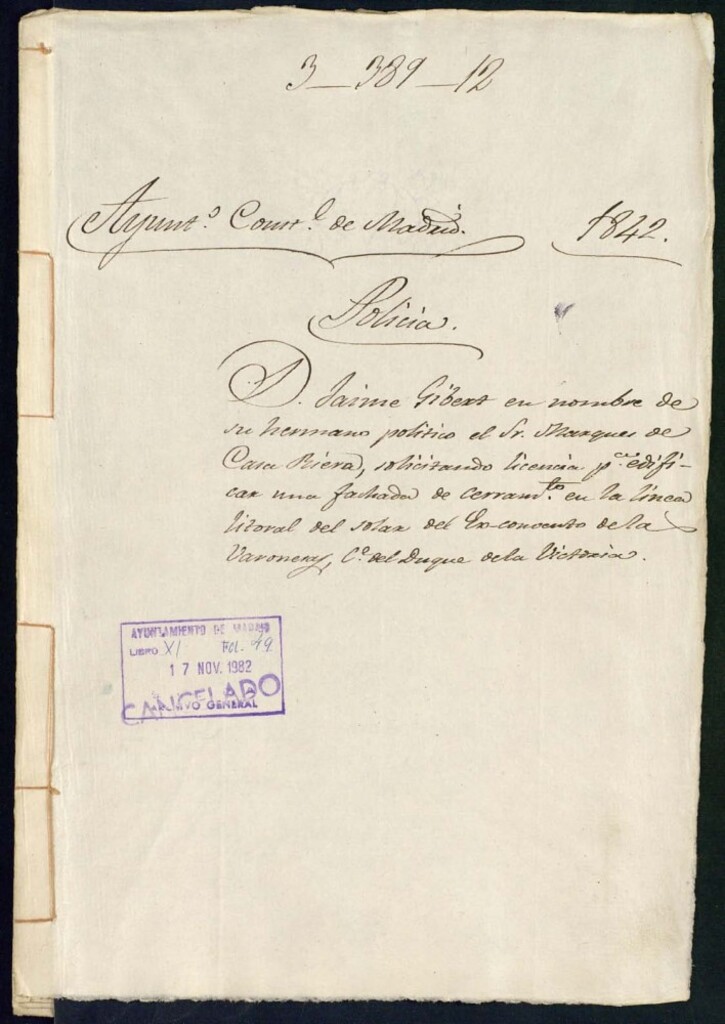 3—389—12
Ayunt.o Const.l de Madrid. 1842.
Policia.
D. Jaime Gibert en nombre de
su hermano politico el Sr. Marques de
Casa Riera, solicitando licencia p.a edifi-
car una fachada de cerram.to en la linea
litoral del solar del Ex-convento de la
Varoneras, C.e del Duque de la Victoria.
AYUNTAMIENTO DE MADRID
LIBRO XI FOL. 49
17 NOV. 1982
CANCELADO
GENERAL